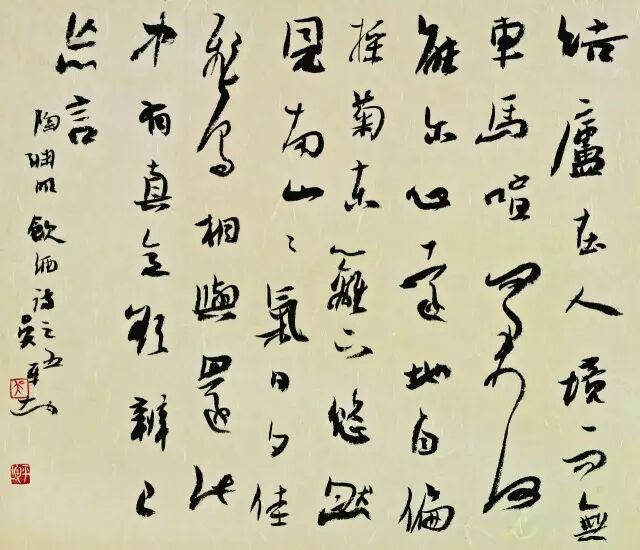 結廬在人境而無
車馬喧問君何
能尔心遠地自偏
採菊東籬下悠然
見南山〻氣日夕佳
飛鳥相與還此
中有真意欲辨已
忘言
陶淵明飲酒詩之五
吳